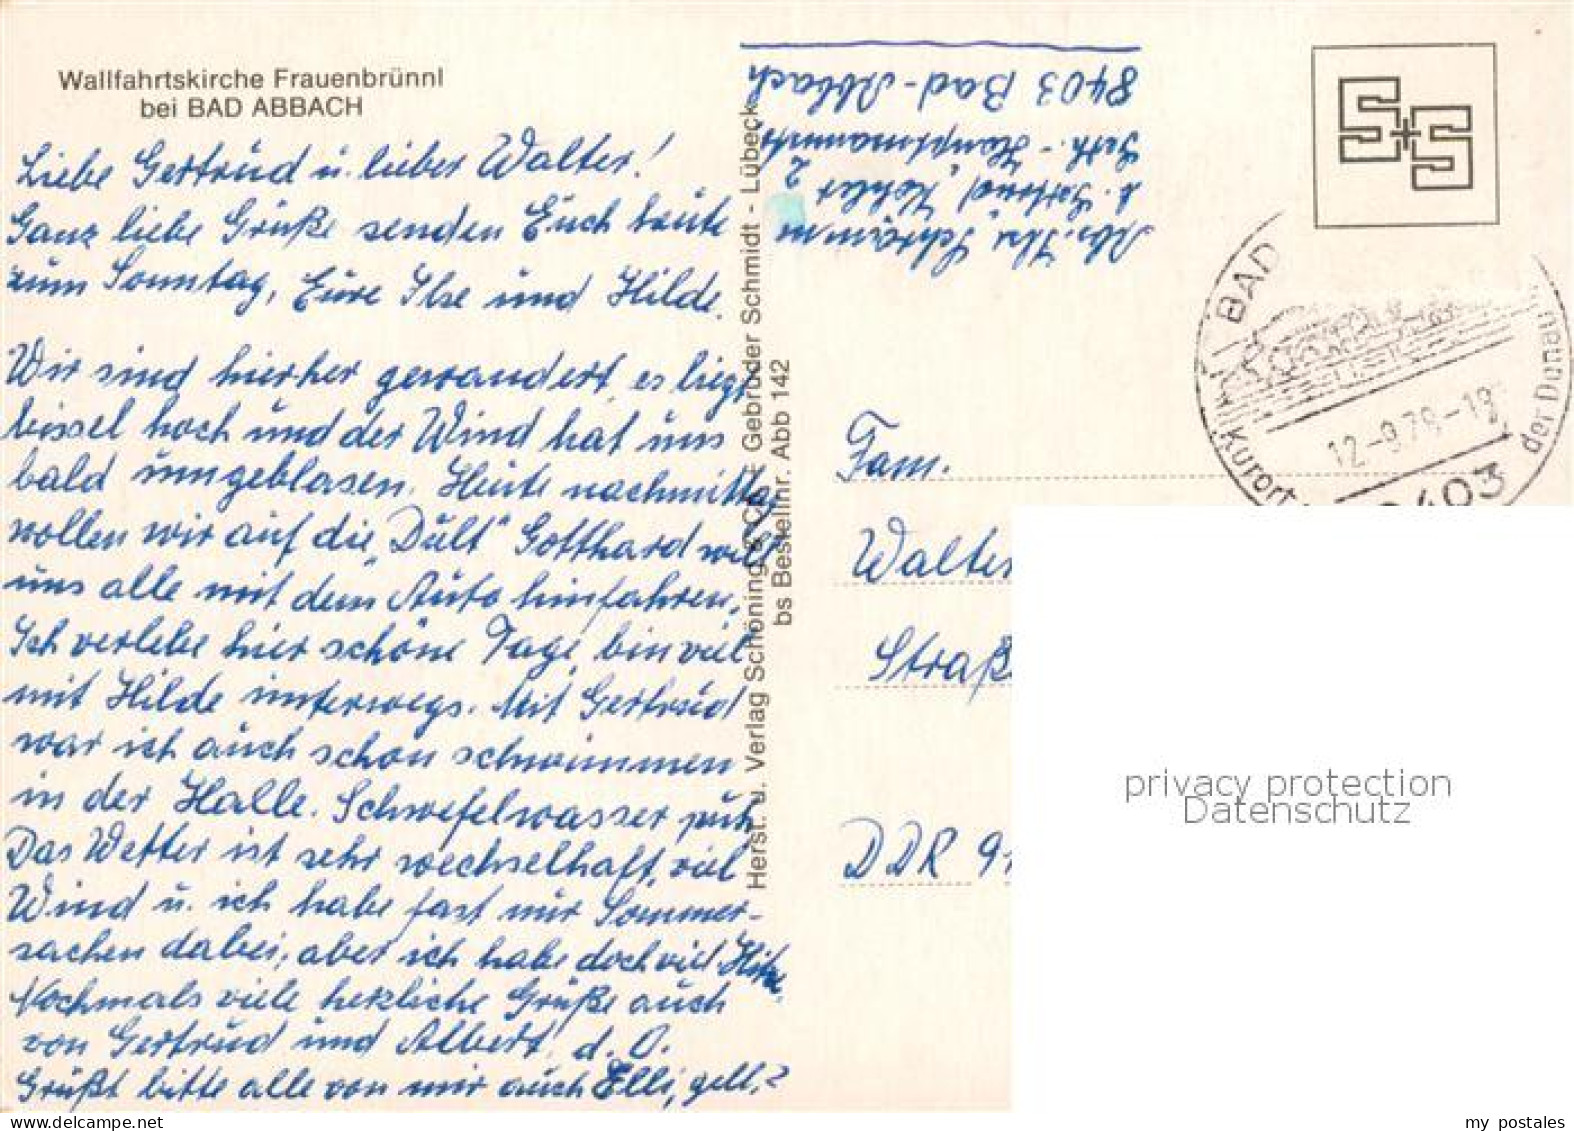 Wallfahrtskirche Frauenbrünnl
bei BAD ABBACH
Liebe Gertrud u. lieber Walter!
Ganz liebe Grüße senden Euch heute
zum Sonntag, Eure Ilse und Hilde.
Wir sind hierher gewandert, es liegt
bissel hoch und der Wind hat uns
bald umgeblasen. Heute nachmittag
wollen wir auf die „Dult" Gotthard will
uns alle mit dem Auto hinfahren.
Ich verlebe hier schöne Tage, bin viel
mit Hilde unterwegs. Mit Gertrud
war ich auch schon schwimmen
in der Halle. Schwefelwasser, puh
Das Wetter ist sehr wechselhaft, viel
Wind u. ich habe fast nur Sommer-
sachen dabei, aber ich habe doch viel Hitze.
Nochmals viele herzliche Grüße auch
von Gertrud und Albert, d. O.
Grüßt bitte alle von mir auch Elli, gell?
Herst. u. Verlag Schöning & Co - Gebrüder Schmidt - Lübeck
bs Bestellnr. Abb 142
Ab. Ilse Schramm
b. Gertrud Köhler
Gerh.-Hauptmannstr. 2
8403 Bad-Abbach
S+S
BAD
Kurort
der Donau
12.-9.79-18
8403
Fam.
Walter
Straß
DDR 91
privacy protection
Datenschutz
my postales
delcampe.net